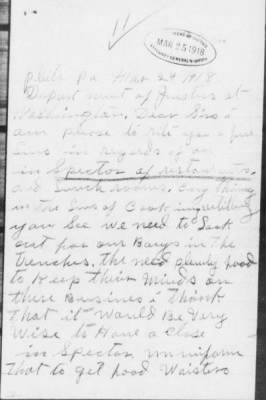 11
MAR 25 1918
ATTORNEY GENERAL'S OFFICE
Phila Pa Mar 24 1918
Department of Justus at
Washington, Dear Sirs i
am please to rite you a few
Lins in regards of an
in Spector of restaurants.
and Lunch rooms. Eny thing
in the Lins of Cooking
you See we need to Look
out for our Boys in the
trenches. the need plenty food
to Keep their Minds on
there Busines i thank
that it would Be Very
Wise to Have a Close
in Spector, in uniform
that to get food Wasters